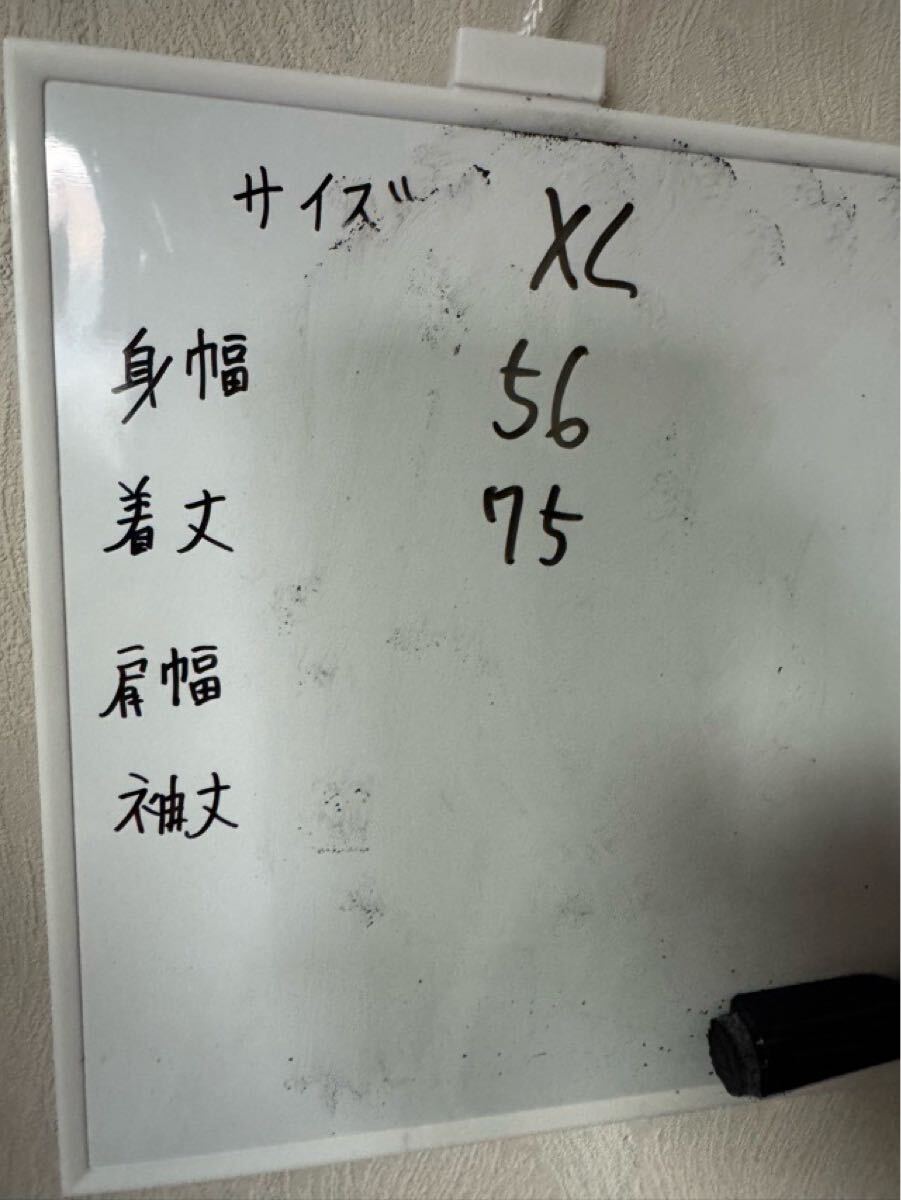 サイズ XL
身幅 56
着丈 75
肩幅
袖丈